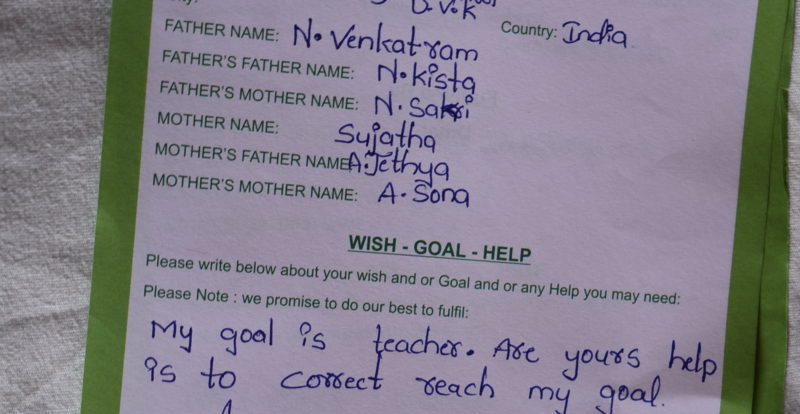 D.V.K
Country: India
FATHER NAME: N. Venkatram
FATHER'S FATHER NAME: N. kista
FATHER'S MOTHER NAME: N. Sakri
MOTHER NAME: Sujatha
MOTHER'S FATHER NAME A. Jethya
MOTHER'S MOTHER NAME: A. Sona
WISH - GOAL - HELP
Please write below about your wish and or Goal and or any Help you may need:
Please Note : we promise to do our best to fulfil:
My goal is teacher. Are yours help
is to correct reach my goal.